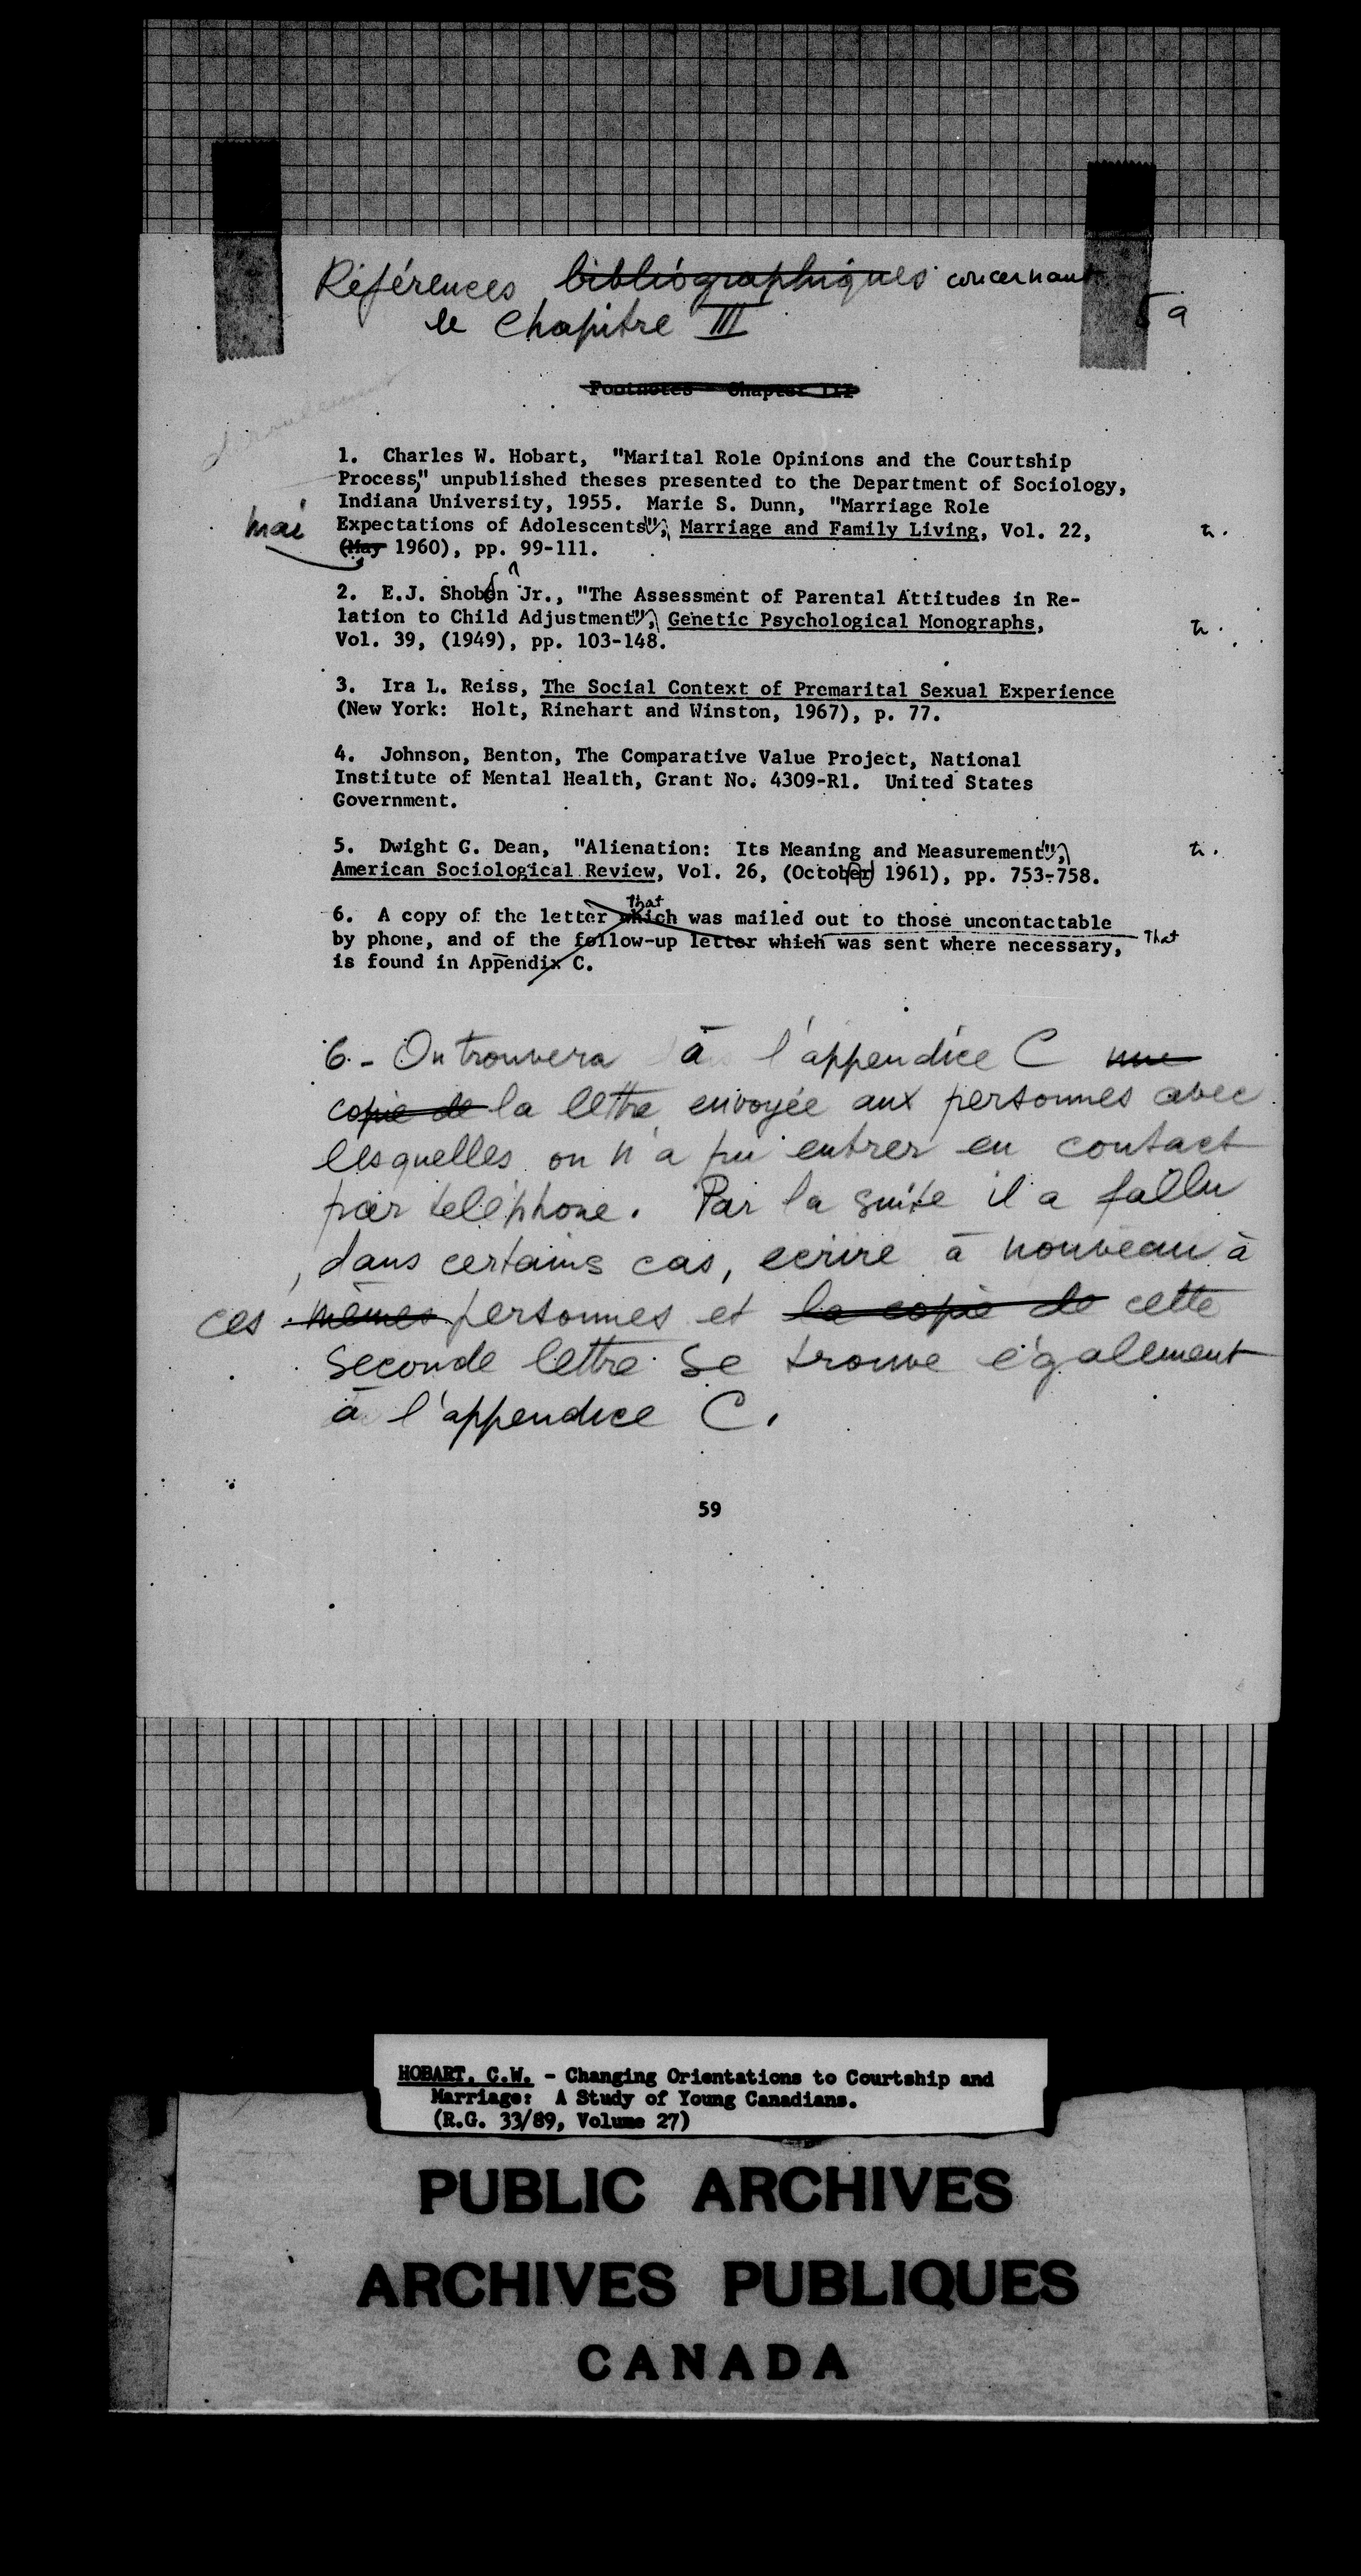 Références bibliographiques concernant
le Chapitre III
59
Footnotes - Chapter III
1. Charles W. Hobart, "Marital Role Opinions and the Courtship
Process," unpublished theses presented to the Department of Sociology,
Indiana University, 1955. Marie S. Dunn, "Marriage Role
Expectations of Adolescents", Marriage and Family Living, Vol. 22, tr.
mai
(May 1960), pp. 99-111.
2. E.J. Shoben Jr., "The Assessment of Parental Attitudes in Re-
lation to Child Adjustment", Genetic Psychological Monographs, tr.
Vol. 39, (1949), pp. 103-148.
3. Ira L. Reiss, The Social Context of Premarital Sexual Experience
(New York: Holt, Rinehart and Winston, 1967), p. 77.
4. Johnson, Benton, The Comparative Value Project, National
Institute of Mental Health, Grant No. 4309-R1. United States
Government.
5. Dwight G. Dean, "Alienation: Its Meaning and Measurement", tr.
American Sociological Review, Vol. 26, (October 1961), pp. 753-758.
That
6. A copy of the letter which was mailed out to those uncontactable
by phone, and of the follow-up letter which was sent where necessary, That
is found in Appendix C.
6.- On trouvera à l'appendice C une
copie de la lettre envoyée aux personnes avec
lesquelles on n'a pu entrer en contact
par teléphone. Par la suite il a fallu
, dans certains cas, ecrire à nouveau à
ces mêmes personnes et la copie de cette
seconde lettre se trouve également
à l'appendice C.
59
HOBART, C.W. - Changing Orientations to Courtship and
Marriage: A Study of Young Canadians.
(R.G. 33/89, Volume 27)
PUBLIC ARCHIVES
ARCHIVES PUBLIQUES
CANADA